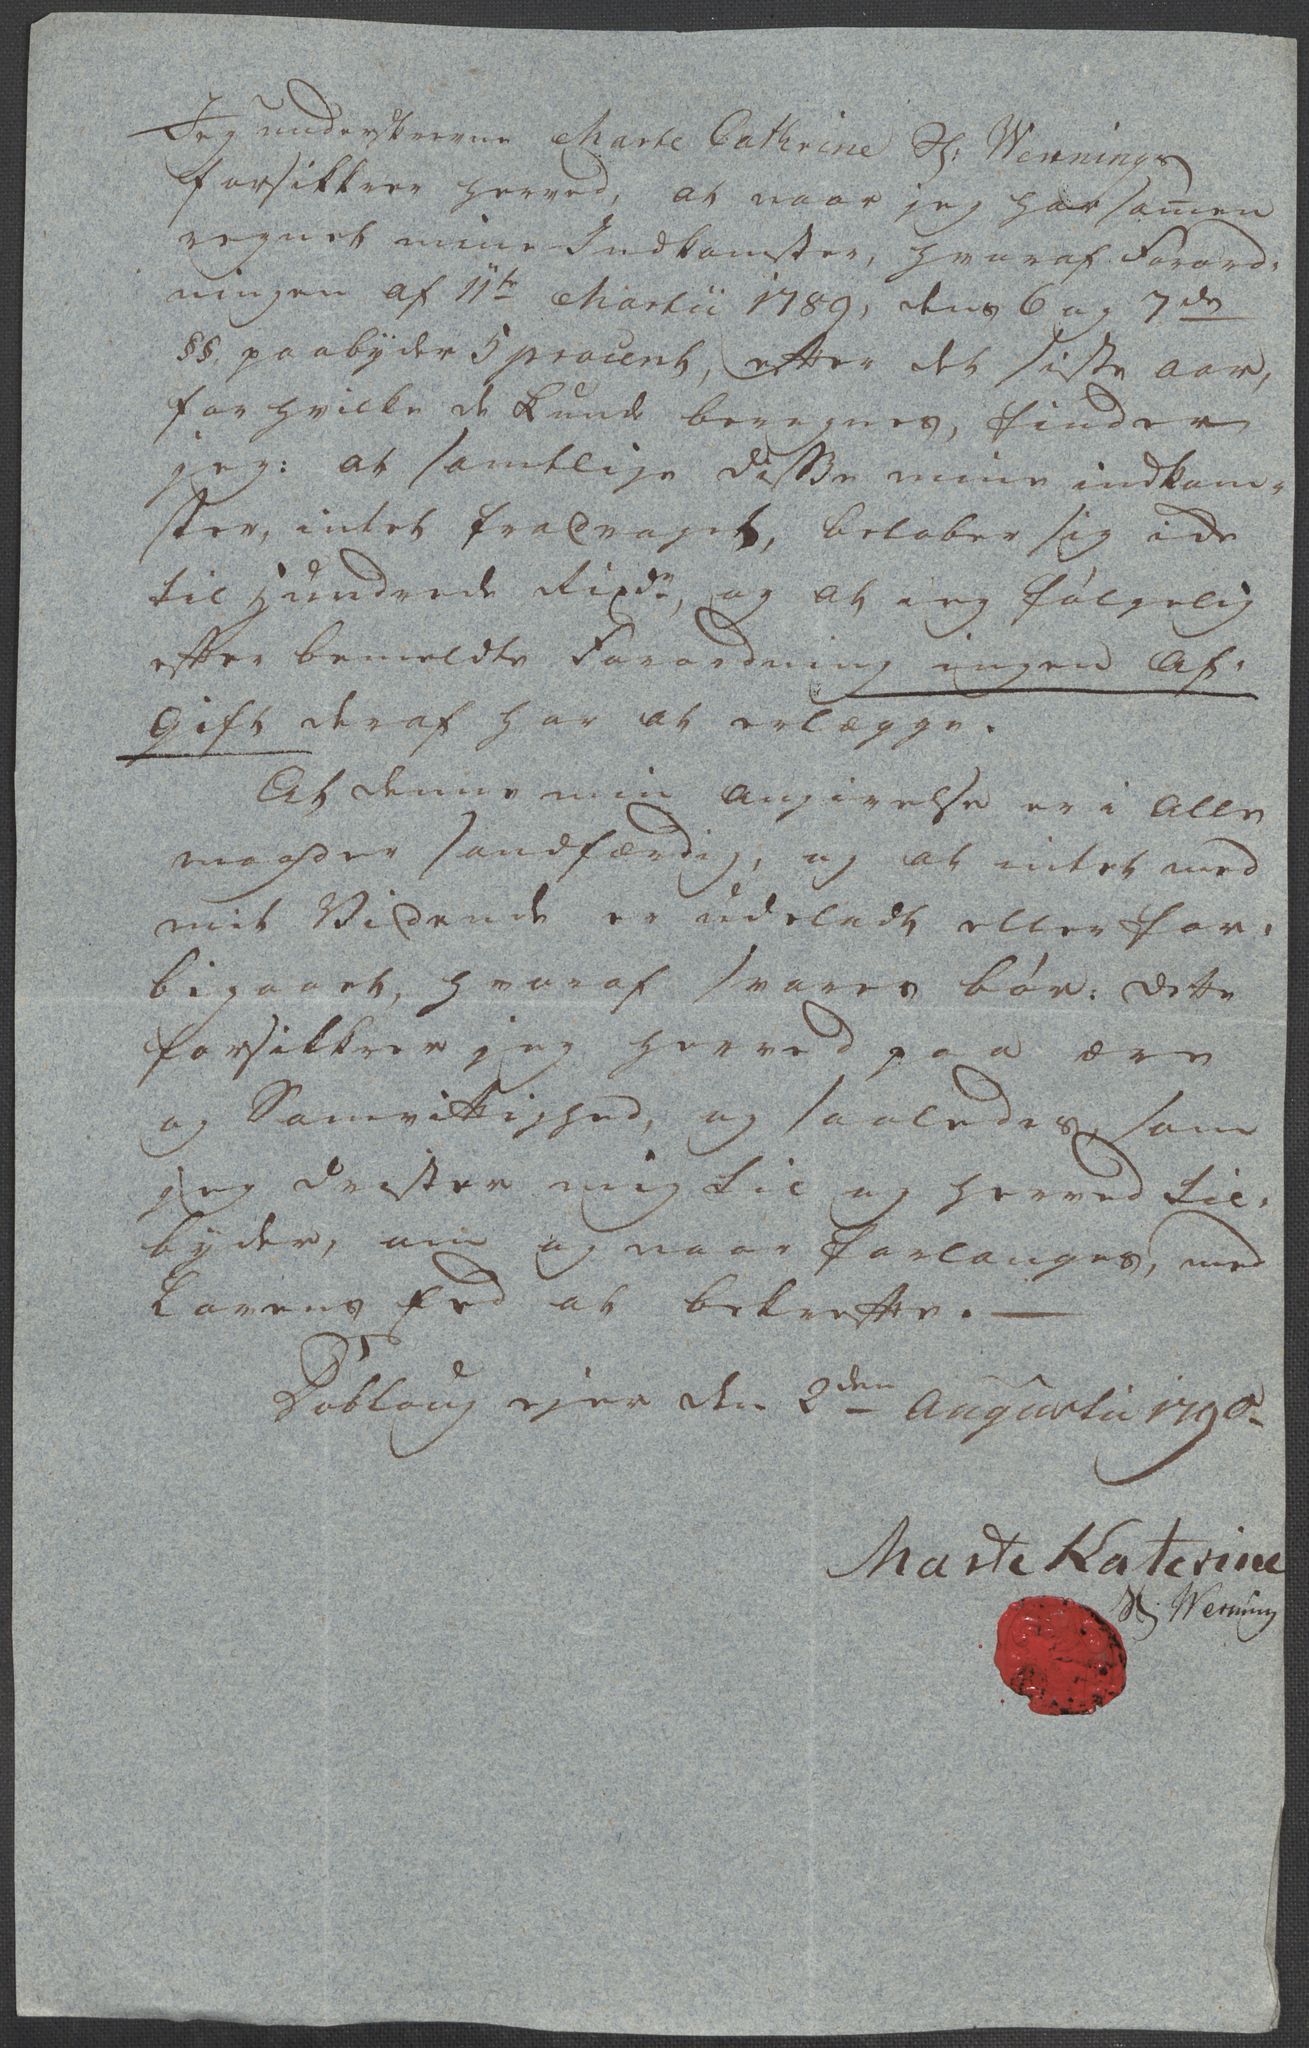 Jeg underskrevne Marte Cathrine Sl: Wennings
forsikkrer herved, at naar jeg har sam̅en
regnet mine Indkomster, hvoraf Forord-
ningen af 11te Martii 1789, dens 6 og 7de
§§. paabyder 5 procent, efter det siste aar,
for hvilke de kunde beregnes, finder
jeg: at samtlige disse mine indkom-
ster, intet fradraget, beløber sig icke
til Hundrede Rixdr, og at jeg følgelig
efter bemeldte Forordning ingen Af-
gift deraf har at erlægge.
At denne min angivelse er i alle
maader sandfærdig, og at intet med
mit Vidende er udeladt eller for-
bigaaet, hvoraf svares bør: dette
forsikkrer jeg herved paa ære
og Samvittighed, og saaledes, som
jeg drister mig til og herved til-
byder, om og naar forlanges, med
Lovens Eed at bekrefte.
Dobloug ejer den 2den Augustii 1790
Marte Katerine
Sl: Wenning